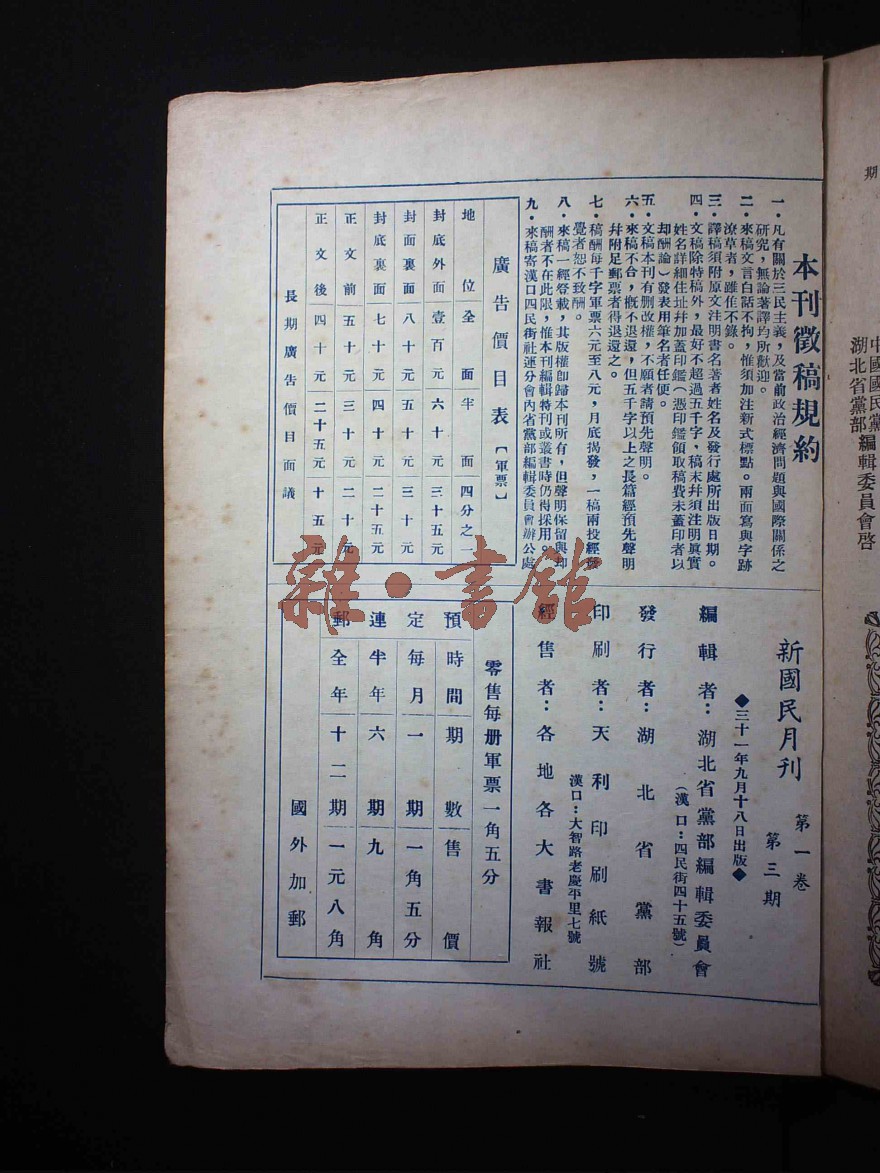 本刊徵稿規約
一・凡有關於三民主義，及當前政治經濟問題與國際關係之
研究，無論著譯均所歡迎。
二・來稿文言白話不拘，惟須加注新式標點。兩面寫與字跡
潦草者，雖佳不錄。
三・譯稿須附原文注明書名著者姓名及發行處所出版日期。
四・文稿除特稿外，最好不超過五千字，稿末幷須注明眞實
姓名詳細住址幷加蓋印鑑（憑印鑑領取稿費未蓋印者以
却酬論）發表用筆名者任便。
五・文稿本刊有删改權，不願者請預先聲明。
六・來稿不合，槪不退還，但五千字以上之長篇經預先聲明
幷附足郵票者得退還之。
七・稿酬每千字軍票六元至八元，月底揭發，一稿兩投經發
覺者恕不致酬。
八・來稿一經登載，其版權卽歸本刊所有，但聲明保留與却
酬者不在此限，惟本刊編輯特刊或叢書時仍得採用。
九・來稿寄漢口四民街社運分會內省黨部編輯委員會辦公處
廣告價目表【軍票】
地位 全面 半面 四分之
封底外面 壹百元 六十元 三十五元
封面裏面 八十元 五十元 三十元
封底裏面 七十元 四十元 二十五元
正文前 五十元 三十元 二十元
正文後 四十元 二十五元 十五元
長期廣告價目面議
新國民月刊 第一卷
第三期
◆三十一年九月十八日出版◆
編輯者：湖北省黨部編輯委員會
（漢口：四民街四十五號）
發行者：湖北省黨部
印刷者：天利印刷紙號
漢口：大智路老慶平里七號
經售者：各地各大書報社
零售每册軍票一角五分
預定連郵
時間 期數 售價
每月 一期 一角五分
半年 六期 九角
全年 十二期 一元八角
國外加郵
期
中國國民黨
湖北省黨部編輯委員會啓
雜・書館